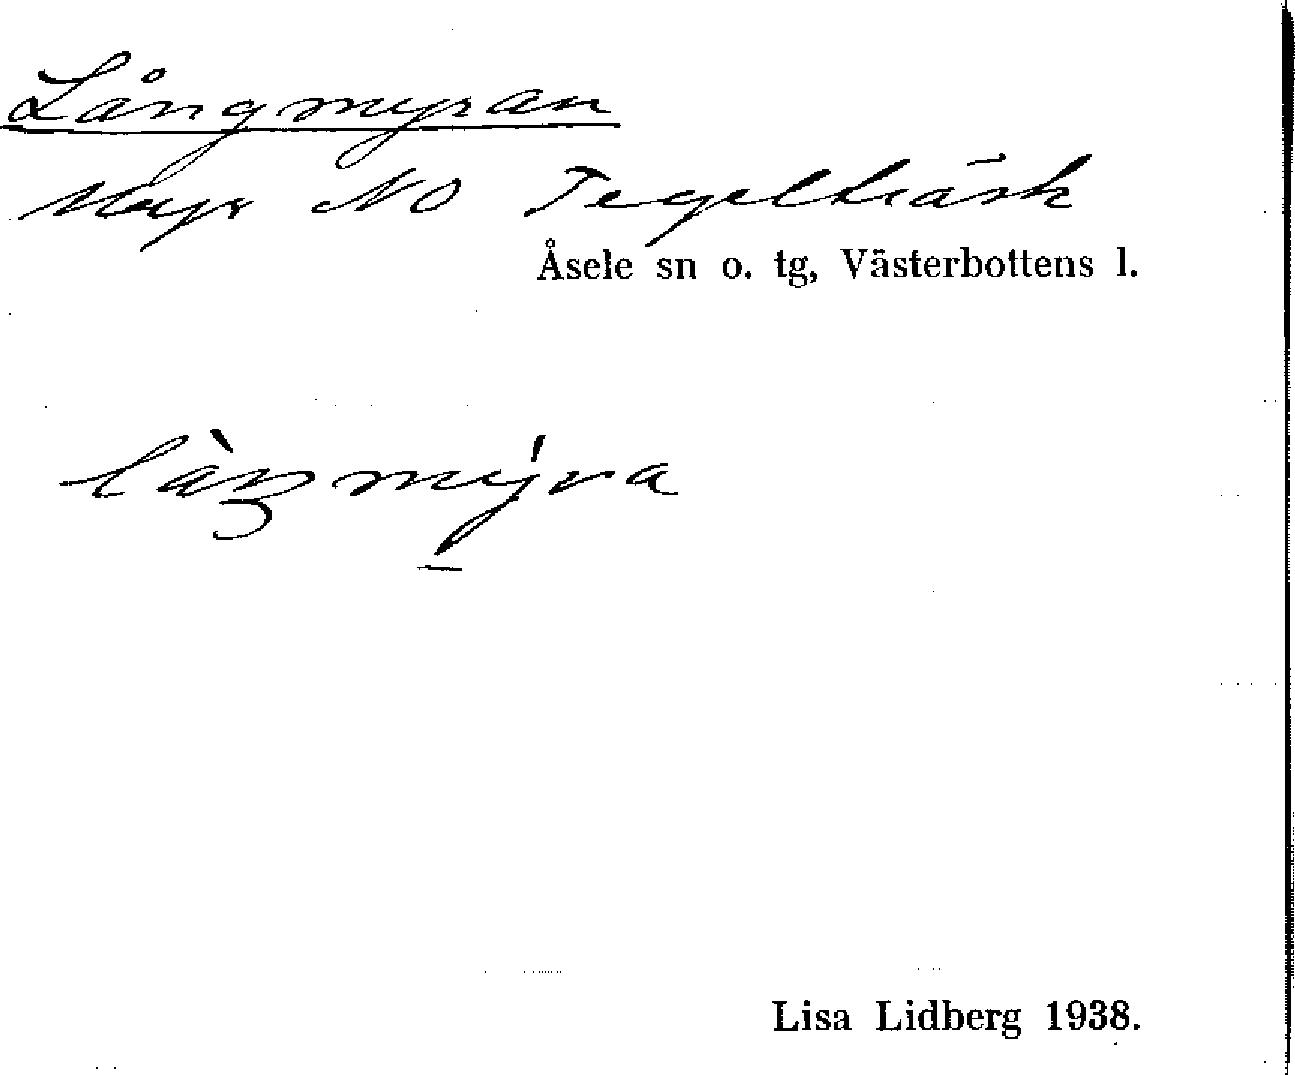 Långmyran
Myr NO Tegelträsk
Åsele sn o. tg, Västerbottens l.
làŋmýra
Lisa Lidberg 1938.